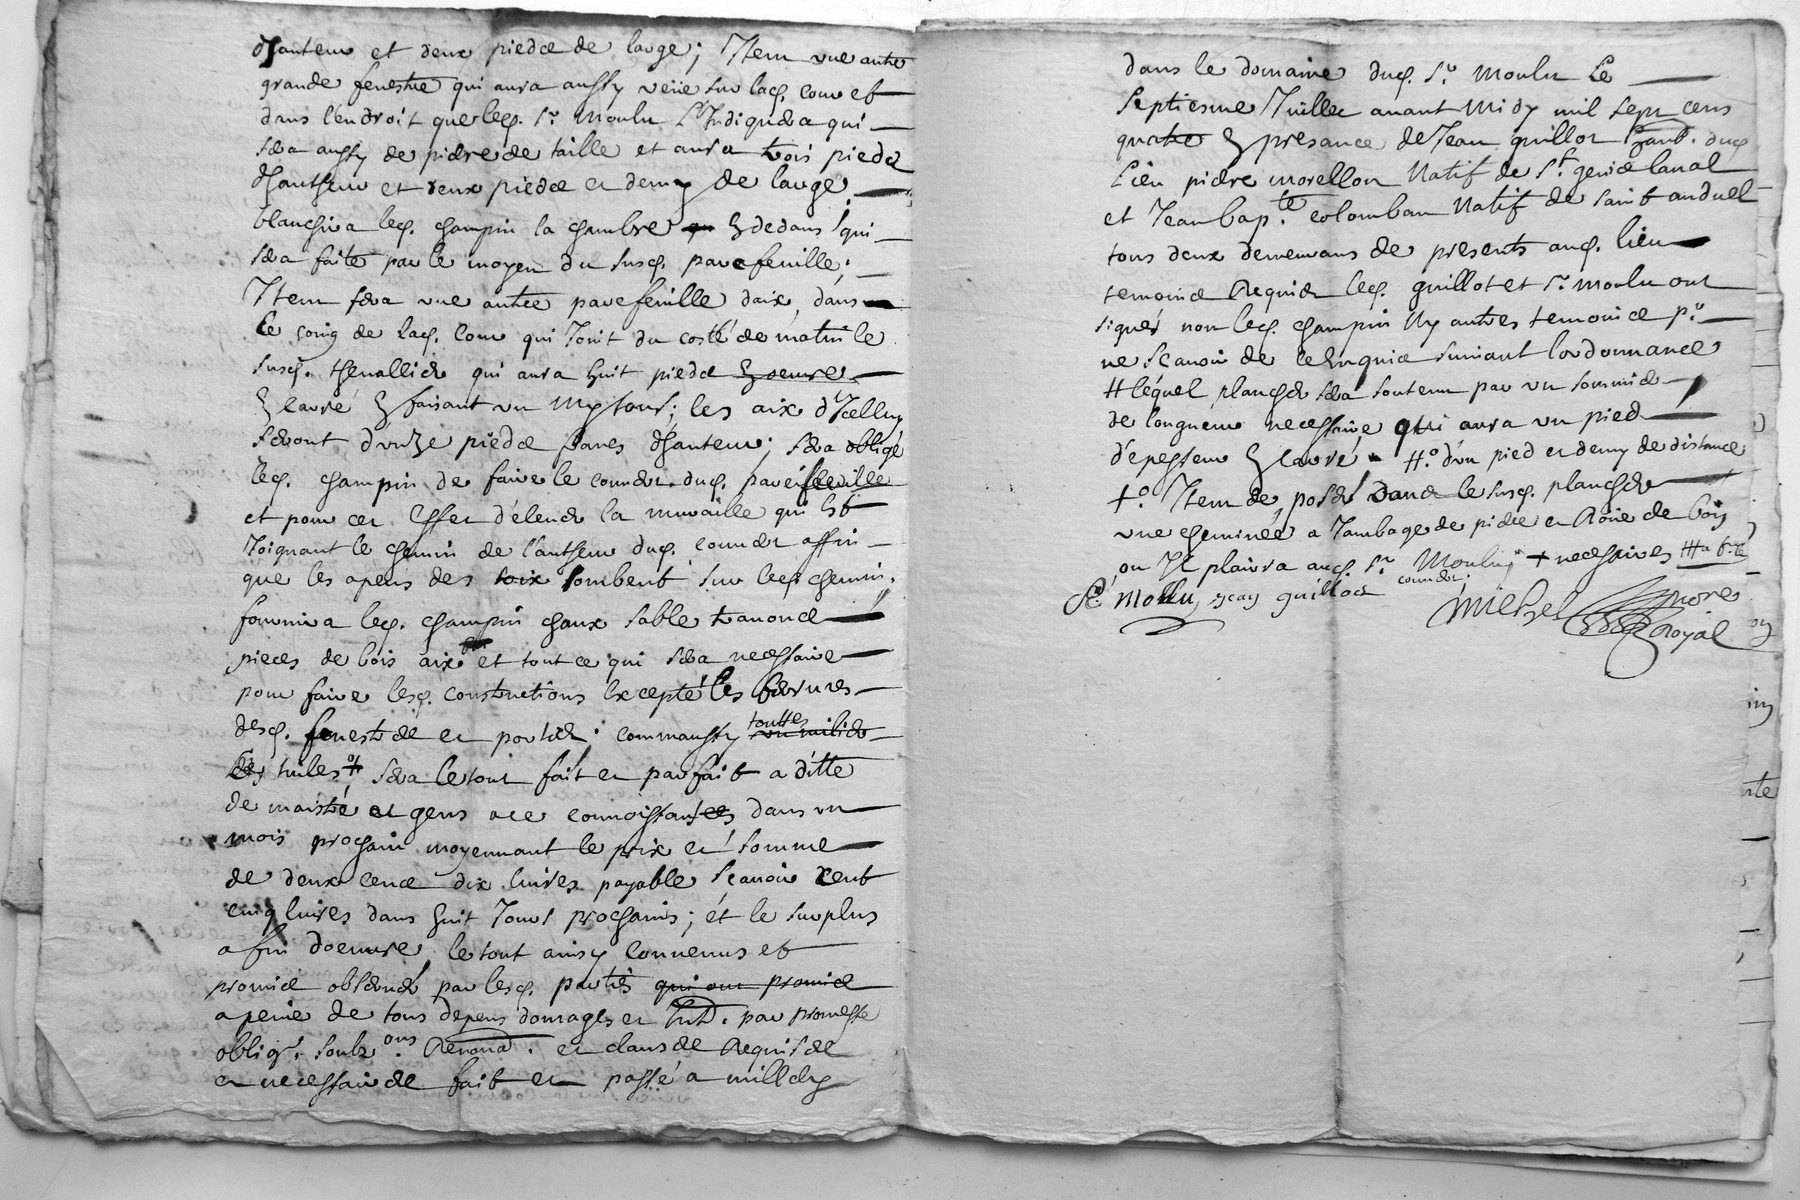 d'hauteur et deux piedz de large; Item une autre
grande fenestre qui aura aussy veüe sur lad. cour et
dans l'endroit que led. Sr. Moulu l'Indiquera qui
sera aussy de pierre de taille et aura trois piedz
d'hautheur et deux piedz et demy de large.
blanchira led. champin la chambre en dedans qui
sera faite par le moyen du susd. parefeuille;
Item fera une autre parefeuille d'aix, dans
le coing de lad. cour qui Joint du costé de matin le
susd. qui aura huit piedz
en carré en faisant un; les aix d'Icelluy
seront d'unze piedz d'hauteur; sera obligé
led. champin de faire le couvert dud. parefeuille
et pour cet Effet d'élever la muraille qui Est
Joignant le chemin de l'autheur dud. couvert affin
que les des tombent sur led. chemin,
fournira led. champin chaux sable travons
pieces de bois aix et tout ce qui sera necessaire
pour faire lesd. constructions Excepté les ferrures
desd. fenestres et portes; comm'aussy touttes
les tuiles sera le tout fait et parfait a ditte
de maistre et gens a ce connoissantes dans un
mois prochain moyennant le prix et somme
de deux cens dix livres payable sçavoir cent
cinq livres dans huit Jours prochains; et le surplus
a fin d'oeuvre, le tout ainsy convenus et
promis observer par lesd. parties qui ont promis
a peine de tous depens domages et Int. par promesse
obligs. soubz.ons Renond. et clauses Requises
et necessaires fait et passé a millery
dans le domaine dud. Sr. Moulu Le
Septiesme Juillet avant Midy mil sept cens
quatre En presance de Jean guillot habt. dud.
Lieu pierre morellon Natif de St. genis laval
et Jean bap.te colomban Natif de saint anduel
tous deux demeurans de presents aud. lieu
temoins Requis led. guillot et Sr. Moulu ont
signés non led. champin Ny autres temoins pr.
ne sçavoir de ce Enquis suivant l'ordonnance
# léquel plancher sera soutenu par un sommier
de longueur necessaire qui aura un pied
d'épesseur En carré #.o d'un pied et demy de distance
+o Item de poser dans le susd. plancher
une cheminée a Jambage de pierre et de bois
ou Il plaira aud. Sr. Moulu, + necessaires
couvert.
Mollu jean guillot Michel nore
Royal